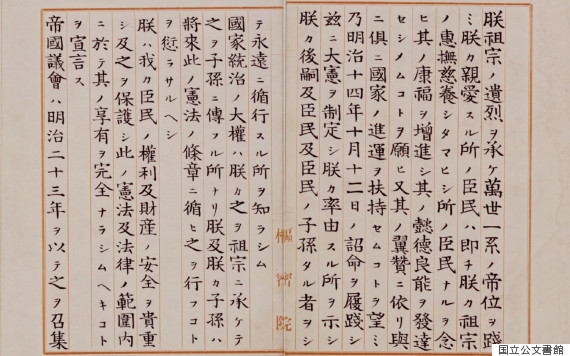 朕祖宗ノ遺烈ヲ承ケ萬世一系ノ帝位ヲ踐
ミ朕カ親愛スル所ノ臣民ハ即チ朕カ祖宗
ノ惠撫慈養シタマヒシ所ノ臣民ナルヲ念
ヒ其ノ康福ヲ增進シ其ノ懿德良能ヲ發達
セシメムコトヲ願ヒ又其ノ翼贊ニ依リ與
ニ俱ニ國家ノ進運ヲ扶持セムコトヲ望ミ
乃明治十四年十月十二日ノ詔命ヲ履踐シ
茲ニ大憲ヲ制定シ朕カ率由スル所ヲ示シ
朕カ後嗣及臣民及臣民ノ子孫タル者ヲシ
樞密院
テ永遠ニ循行スル所ヲ知ラシム
國家統治ノ大權ハ朕カ之ヲ祖宗ニ承ケテ
之ヲ子孫ニ傳フル所ナリ朕及朕カ子孫ハ
將來此ノ憲法ノ條章ニ循ヒ之ヲ行フコト
ヲ愆ラサルヘシ
朕ハ我カ臣民ノ權利及財產ノ安全ヲ貴重
シ及之ヲ保護シ此ノ憲法及法律ノ範圍内
ニ於テ其ノ享有ヲ完全ナラシムヘキコト
ヲ宣言ス
帝國議會ハ明治二十三年ヲ以テ之ヲ召集
国立公文書館